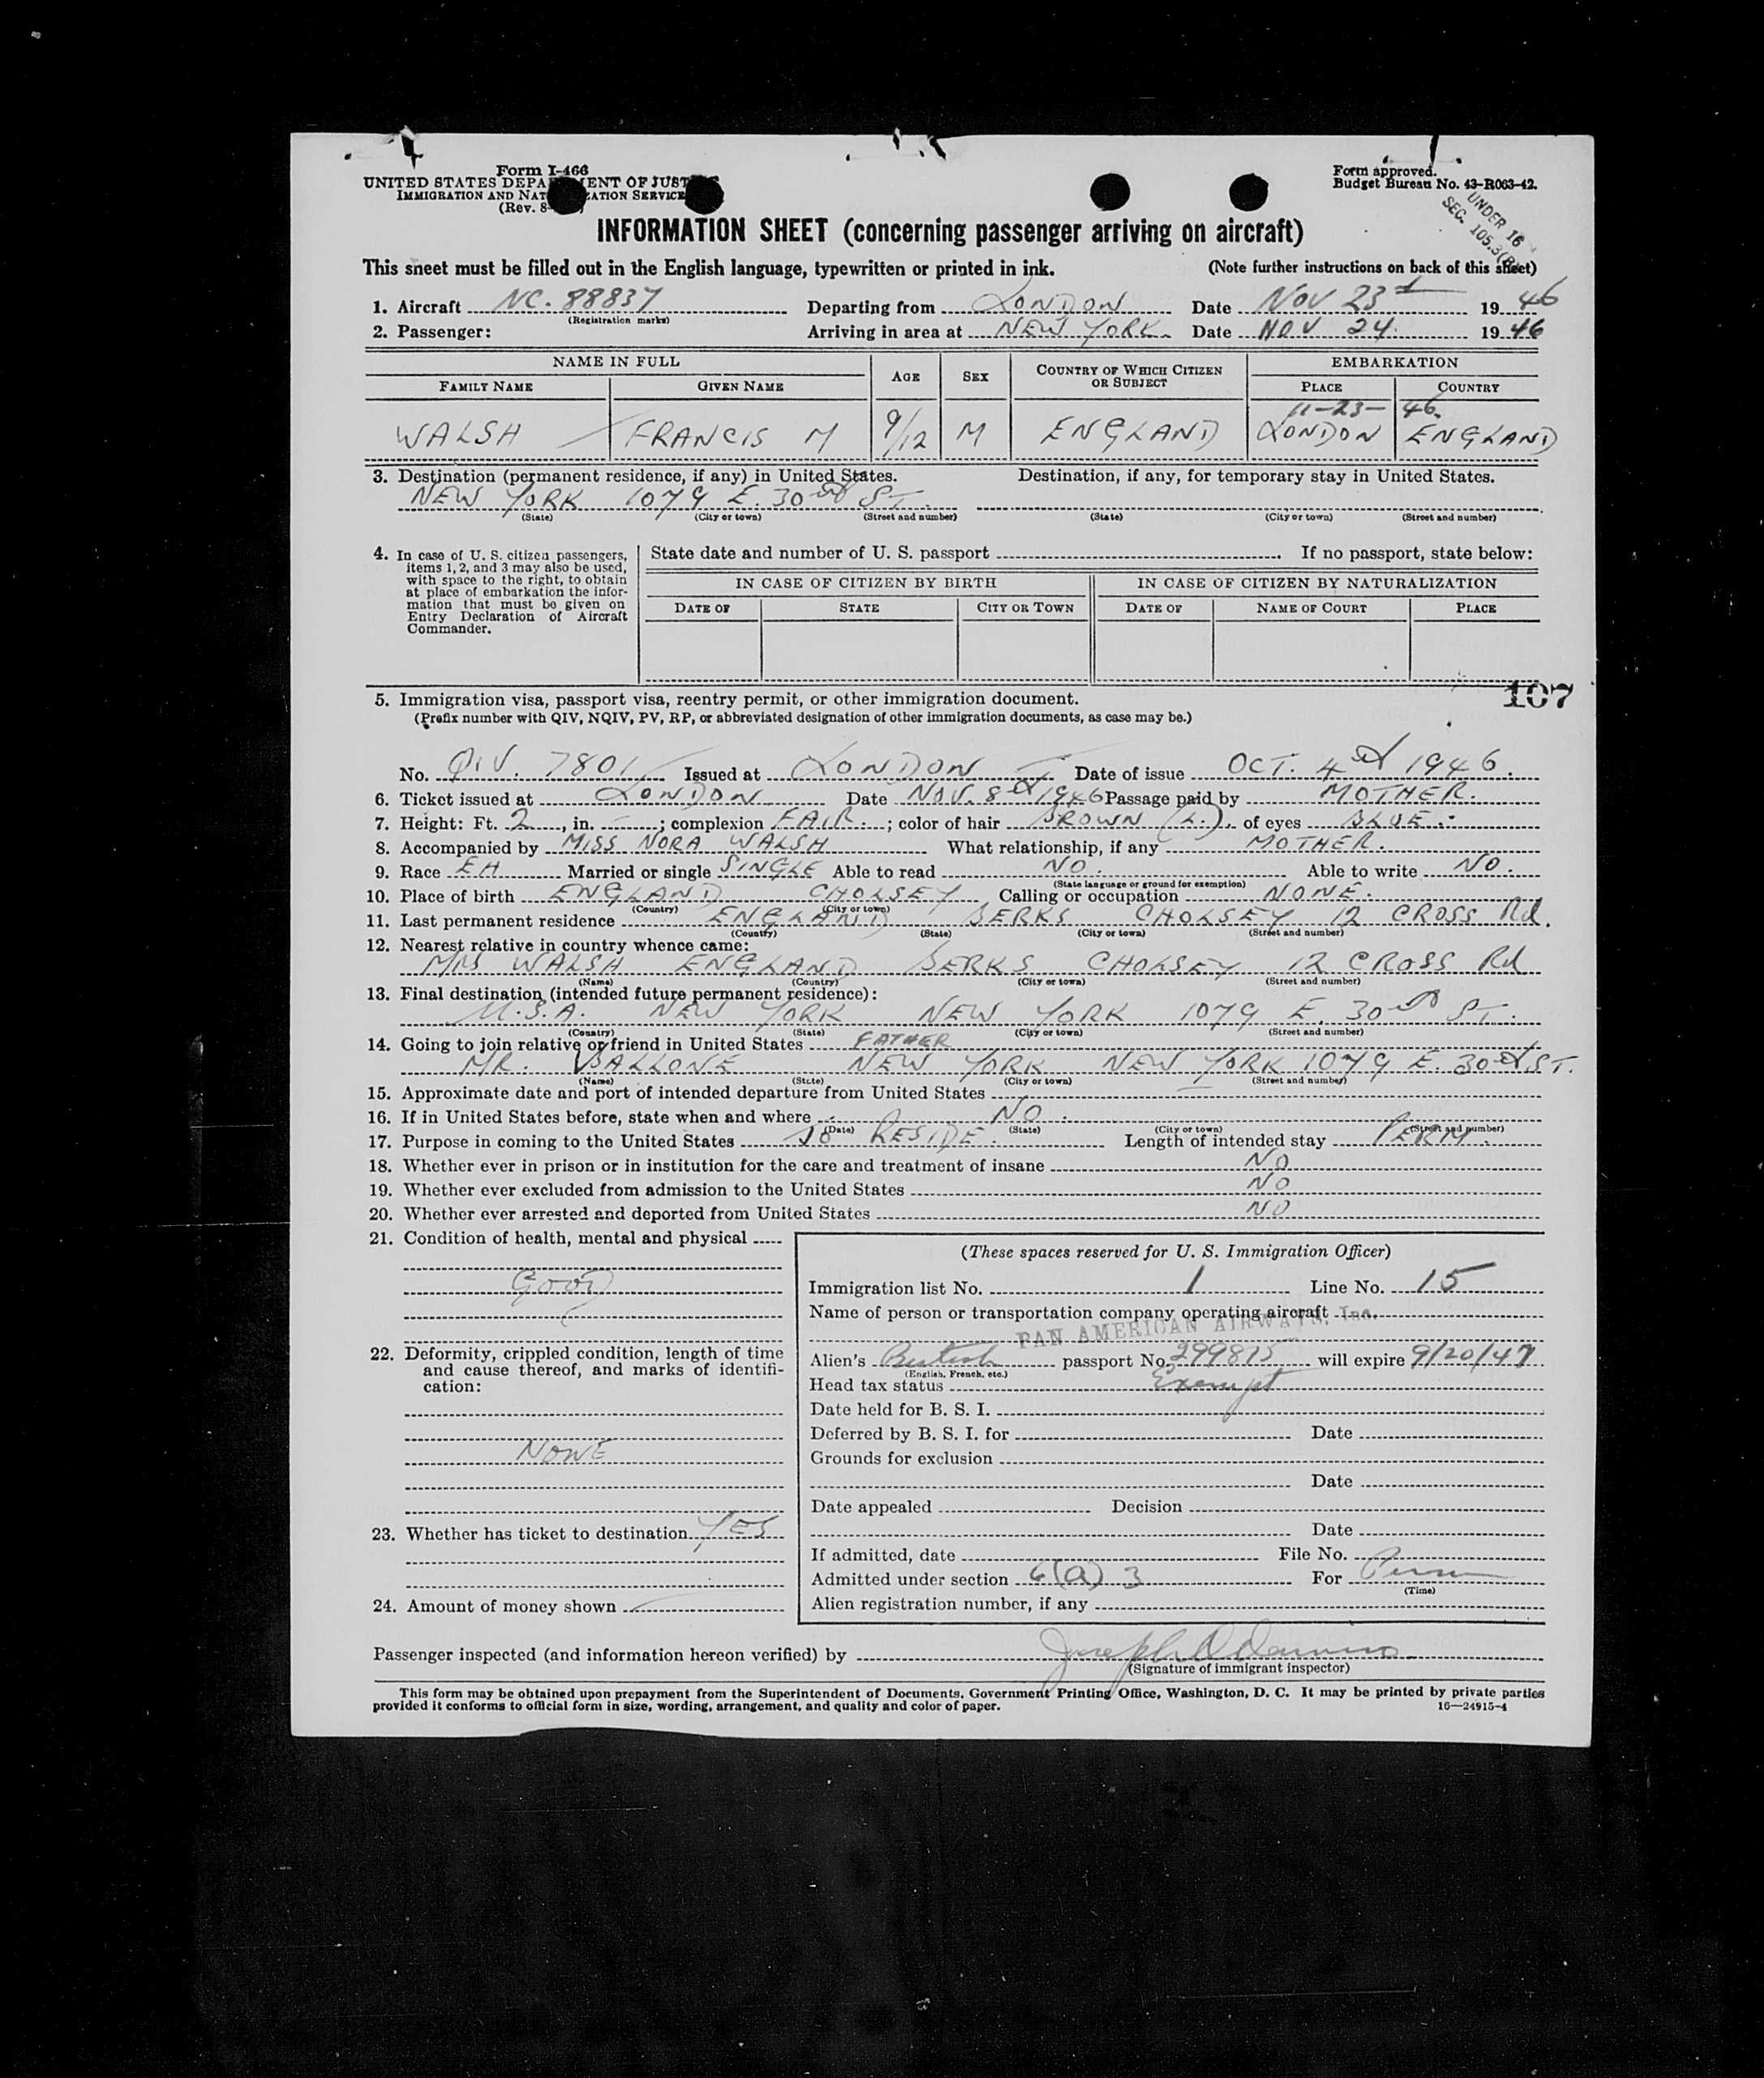 Form I-466
UNITED STATES DEPA ENT OF JUST
IMMIGRATION AND NAT ZATION SERVICE
(Rev. 8-
Form approved.
Budget Bureau No. 43-R063-42.
UNDER 16
SEC. 105.3
INFORMATION SHEET (concerning passenger arriving on aircraft)
This sheet must be filled out in the English language, typewritten or printed in ink. (Note further instructions on back of this sheet)
1. Aircraft NC. 88837 Departing from LONDON Date NOV 23rd 1946
(Registration marks)
2. Passenger: Arriving in area at NEW YORK Date NOV 24. 1946
NAME IN FULL AGE SEX COUNTRY OF WHICH CITIZEN OR SUBJECT EMBARKATION
FAMILY NAME GIVEN NAME PLACE COUNTRY
11-23-46.
WALSH FRANCIS M 9/12 M ENGLAND LONDON ENGLAND
3. Destination (permanent residence, if any) in United States. Destination, if any, for temporary stay in United States.
NEW YORK 1079 E. 30th ST.
(State) (City or town) (Street and number) (State) (City or town) (Street and number)
4. In case of U. S. citizen passengers, items 1, 2, and 3 may also be used, with space to the right, to obtain at place of embarkation the information that must be given on Entry Declaration of Aircraft Commander.
State date and number of U. S. passport . If no passport, state below:
IN CASE OF CITIZEN BY BIRTH IN CASE OF CITIZEN BY NATURALIZATION
DATE OF STATE CITY OR TOWN DATE OF NAME OF COURT PLACE
107
5. Immigration visa, passport visa, reentry permit, or other immigration document.
(Prefix number with QIV, NQIV, PV, RP, or abbreviated designation of other immigration documents, as case may be.)
No. QIV. 7801 Issued at LONDON Date of issue OCT. 4th 1946.
6. Ticket issued at LONDON Date NOV. 8th 1946 Passage paid by MOTHER.
7. Height: Ft. 2, in. -; complexion FAIR.; color of hair BROWN (L.). of eyes BLUE.
8. Accompanied by MISS NORA WALSH What relationship, if any MOTHER.
9. Race EH Married or single SINGLE Able to read NO. Able to write NO.
(State language or ground for exemption)
10. Place of birth ENGLAND CHOLSEY Calling or occupation NONE.
(Country) (City or town)
11. Last permanent residence ENGLAND BERKS CHOLSEY 12 CROSS Rd.
(Country) (State) (City or town) (Street and number)
12. Nearest relative in country whence came:
MRS WALSH ENGLAND BERKS CHOLSEY 12 CROSS Rd
(Name) (Country) (City or town) (Street and number)
13. Final destination (intended future permanent residence):
U.S.A. NEW YORK NEW YORK 1079 E. 30th ST.
(Country) (State) (City or town) (Street and number)
14. Going to join relative or friend in United States FATHER
MR. BALLONE NEW YORK NEW YORK 1079 E. 30th ST.
(Name) (State) (City or town) (Street and number)
15. Approximate date and port of intended departure from United States —
16. If in United States before, state when and where NO.
(Date) (State) (City or town) (Street and number)
17. Purpose in coming to the United States TO RESIDE. Length of intended stay PERM.
18. Whether ever in prison or in institution for the care and treatment of insane NO
19. Whether ever excluded from admission to the United States NO
20. Whether ever arrested and deported from United States NO
21. Condition of health, mental and physical
GOOD
22. Deformity, crippled condition, length of time and cause thereof, and marks of identification:
NONE
23. Whether has ticket to destination YES
24. Amount of money shown
(These spaces reserved for U. S. Immigration Officer)
Immigration list No. 1 Line No. 15
Name of person or transportation company operating aircraft
PAN AMERICAN AIRWAYS, Inc.
Alien's British passport No. 299875 will expire 9/20/47
(English, French, etc.)
Head tax status Exempt
Date held for B. S. I.
Deferred by B. S. I. for Date
Grounds for exclusion
Date
Date appealed Decision
Date
If admitted, date File No.
Admitted under section 6(a) 3 For Perm
(Time)
Alien registration number, if any
Passenger inspected (and information hereon verified) by
(Signature of immigrant inspector)
This form may be obtained upon prepayment from the Superintendent of Documents, Government Printing Office, Washington, D. C. It may be printed by private parties
provided it conforms to official form in size, wording, arrangement, and quality and color of paper. 16—24915-4